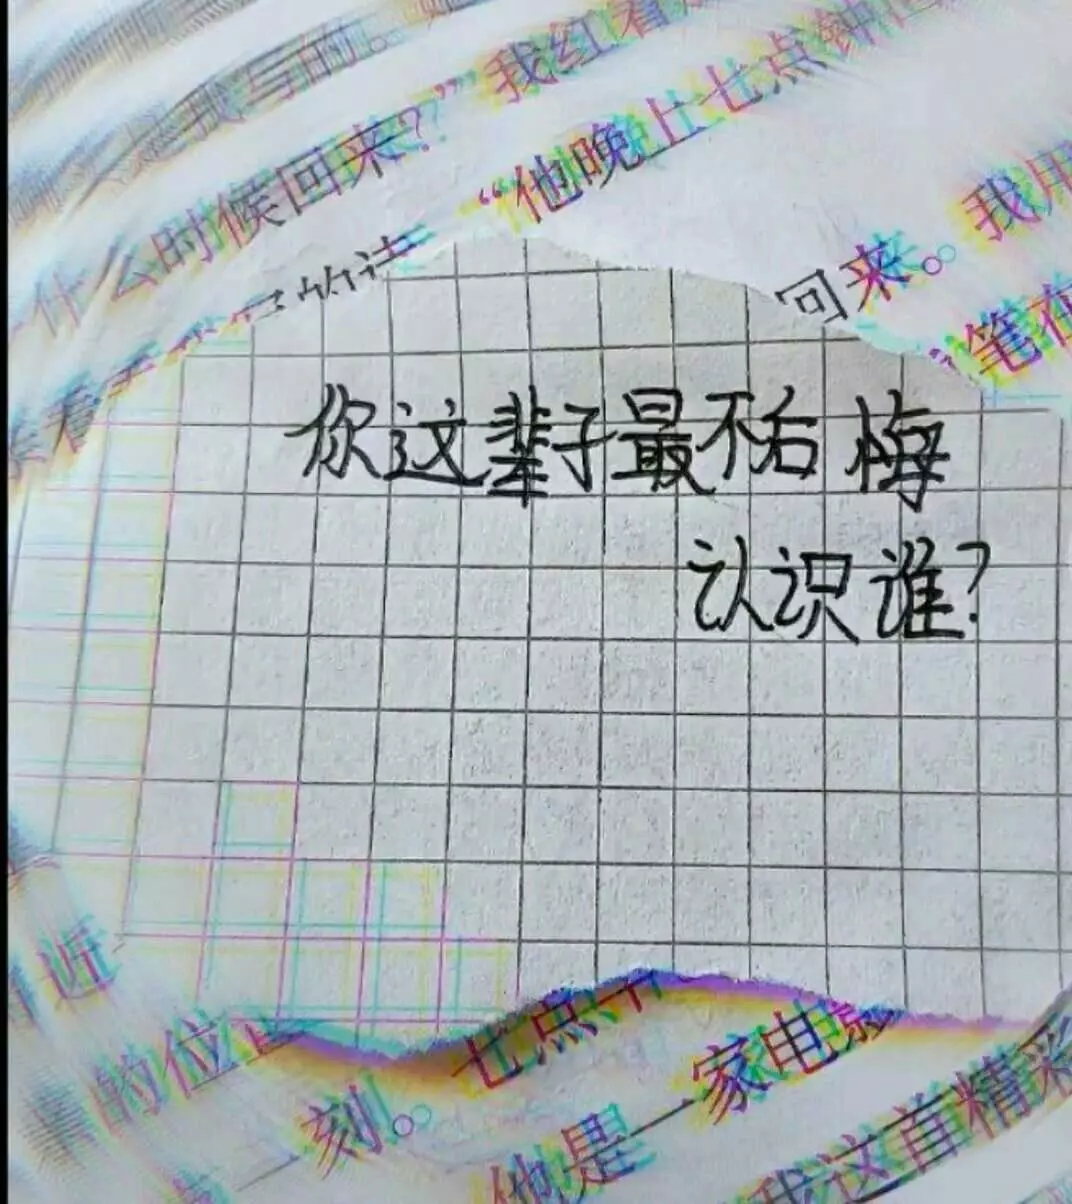 是我写的。
什么时候回来？”我红着
“他晚上七点钟
回来。我用
笔在
你这辈子最不后悔
认识谁?
近
的位置
七点
一刻。
一家电影
他是
我这首精彩